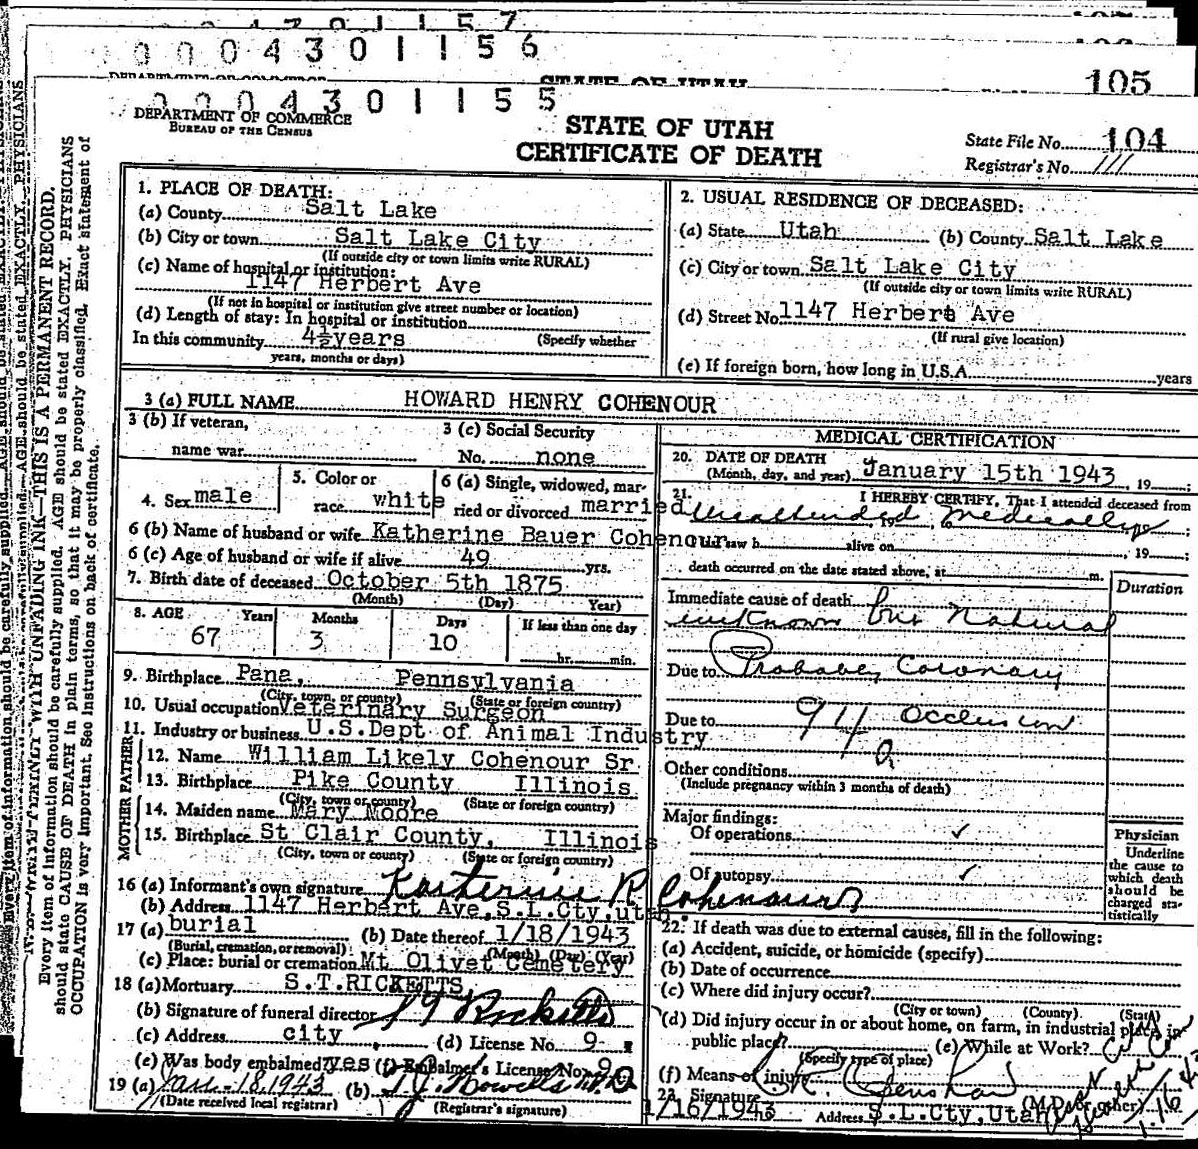 0004301156
105
0004301155
DEPARTMENT OF COMMERCE
BUREAU OF THE CENSUS
STATE OF UTAH
CERTIFICATE OF DEATH
State File No. 104
Registrar's No. 111
1. PLACE OF DEATH:
(a) County Salt Lake
(b) City or town Salt Lake City
(If outside city or town limits write RURAL)
(c) Name of hospital or institution:
1147 Herbert Ave
(If not in hospital or institution give street number or location)
(d) Length of stay: In hospital or institution
In this community 4½ years (Specify whether
years, months or days)
2. USUAL RESIDENCE OF DECEASED:
(a) State Utah (b) County Salt Lake
(c) City or town Salt Lake City
(If outside city or town limits write RURAL)
(d) Street No. 1147 Herbert Ave
(If rural give location)
(e) If foreign born, how long in U.S.A. years
3 (a) FULL NAME HOWARD HENRY COHENOUR
3 (b) If veteran, name war
3 (c) Social Security No. none
4. Sex male
5. Color or race white
6 (a) Single, widowed, married or divorced married
6 (b) Name of husband or wife Katherine Bauer Cohenour
6 (c) Age of husband or wife if alive 49 yrs.
7. Birth date of deceased October 5th 1875
(Month) (Day) Year)
8. AGE Years Months Days If less than one day
67 3 10 hr. min.
9. Birthplace Pana, Pennsylvania
(City, town, or county) (State or foreign country)
10. Usual occupation Veterinary Surgeon
11. Industry or business U.S.Dept of Animal Industry
FATHER
12. Name William Likely Cohenour Sr
13. Birthplace Pike County Illinois
(City, town or county) (State or foreign country)
MOTHER
14. Maiden name Mary Moore
15. Birthplace St Clair County, Illinois
(City, town or county) (State or foreign country)
16 (a) Informant's own signature Katherine R Cohenour
(b) Address 1147 Herbert Ave, S.L.Cty, utah.
17 (a) burial (b) Date thereof 1/18/1943
(Burial, cremation, or removal) (Month) (Day) (Year)
(c) Place: burial or cremation Mt. Olivet Cemetery
18 (a) Mortuary S.T.RICKETTS
(b) Signature of funeral director S T Ricketts
(c) Address city (d) License No. 9
(e) Was body embalmed? yes (f) Embalmer's License No. 9
19 (a) Jan. -18.1943 (b) T.J. Howells M.D
(Date received local registrar) (Registrar's signature)
MEDICAL CERTIFICATION
20. DATE OF DEATH
(Month, day, and year) January 15th 1943, 19
21. I HEREBY CERTIFY, That I attended deceased from
Unattended 19 to Medically
I last saw h alive on , 19 ;
death occurred on the date stated above, at m.
Duration
Immediate cause of death
unknown but Natural
Due to Probably Coronary
Due to 94 occlusion
a
Other conditions
(Include pregnancy within 3 months of death)
Major findings:
Of operations ✓
Of autopsy ✓
Physician
Underline
the cause to
which death
should be
charged sta-
tistically
22. If death was due to external causes, fill in the following:
(a) Accident, suicide, or homicide (specify)
(b) Date of occurrence
(c) Where did injury occur?
(City or town) (County) (State)
(d) Did injury occur in or about home, on farm, in industrial place in
public place? (e) While at Work?
(Specify type of place)
(f) Means of injury
23. Signature
(M.D. or other)
1/16/1943 Address S.L.Cty, Utah
Every item of information should be carefully supplied. AGE should be stated EXACTLY. PHYSICIANS
should state CAUSE OF DEATH in plain terms, so that it may be properly classified. Exact statement of
OCCUPATION is very important. See instructions on back of certificate.